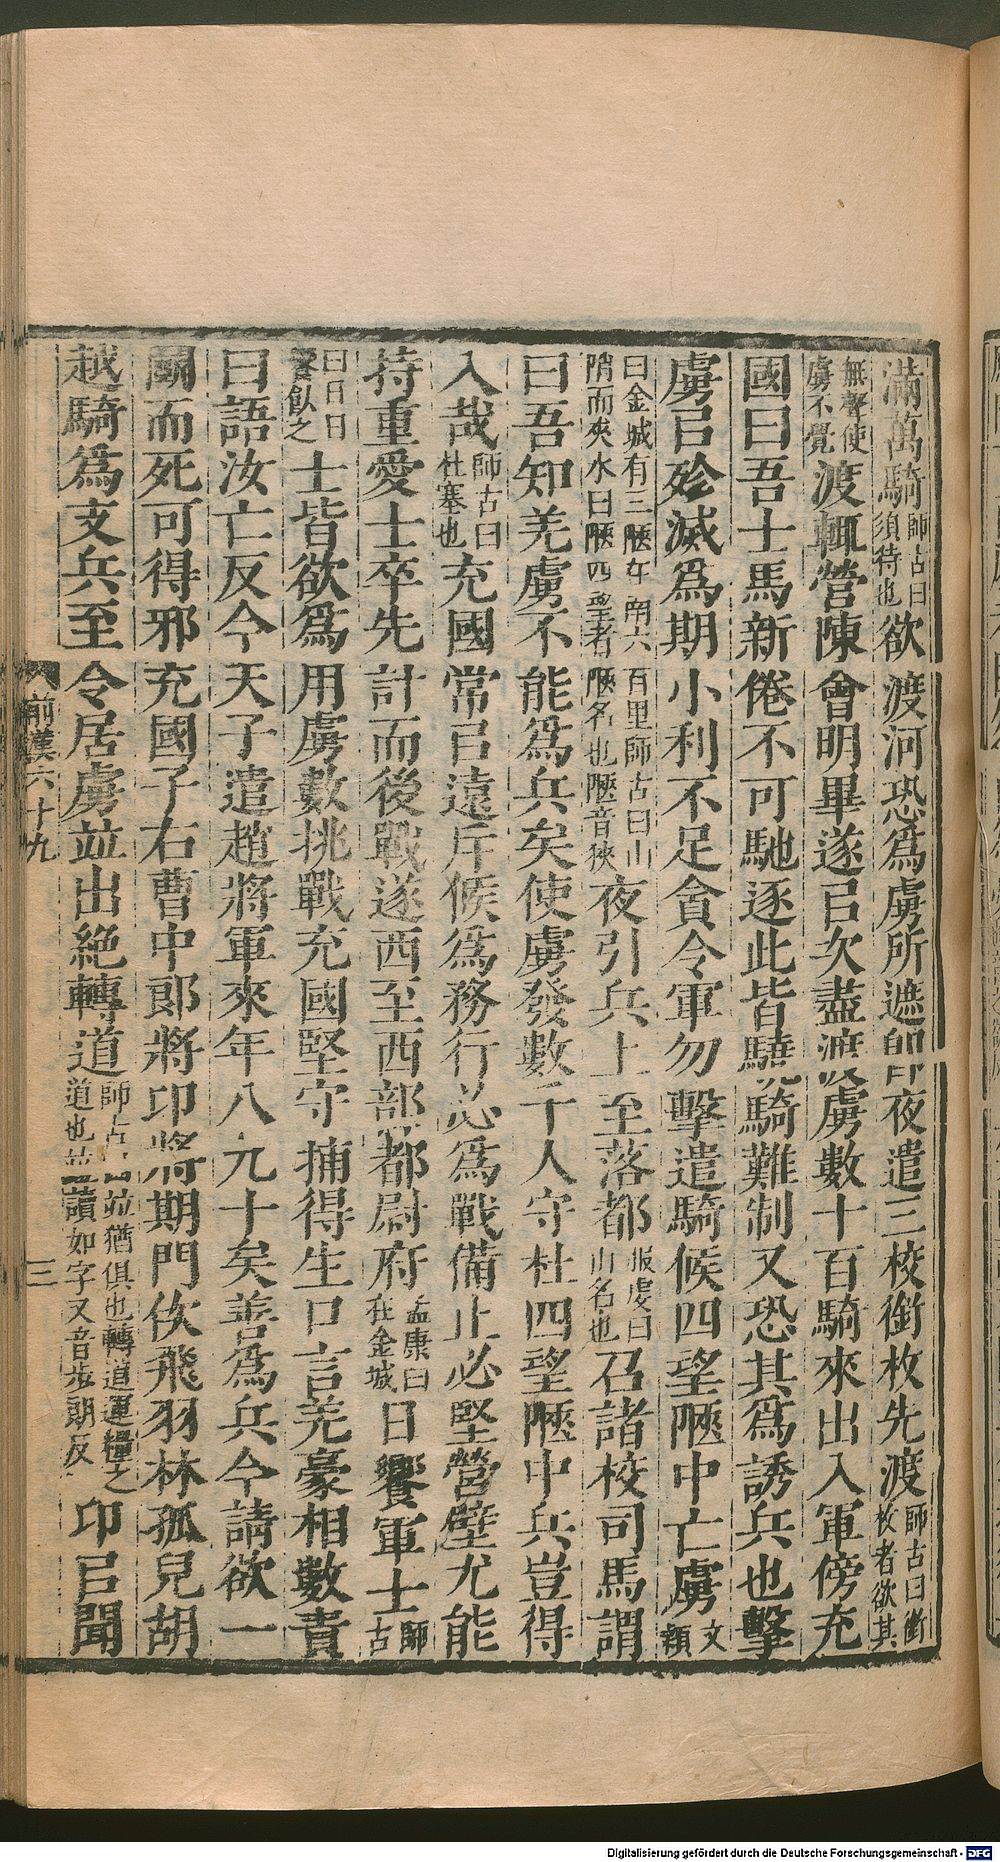 滿萬騎師古曰須待也欲渡河恐爲虜所遮卽夜遣三校銜枚先渡師古曰銜枚者欲其
無聲使虜不覺渡輒營陳會明畢遂㠯次盡渡虜數十百騎來出入軍傍充
國曰吾士馬新倦不可馳逐此皆驍騎難制又恐其爲誘兵也擊
虜㠯殄滅爲期小利不足貪令軍勿擊遣騎候四望陿中亡虜文穎
曰金城有三陿在南六百里師古曰山陗而夾水曰陿四望者陿名也陿音狹夜引兵上至落都服虔曰山名也召諸校司馬謂
曰吾知羌虜不能爲兵矣使虜發數千人守杜四望陿中兵豈得
入哉師古曰杜塞也充國常㠯遠斥候爲務行必爲戰備止必堅營壁尤能
持重愛士卒先計而後戰遂西至西部都尉府孟康曰在金城日饗軍士師古
曰日日饗飲之士皆欲爲用虜數挑戰充國堅守捕得生口言羌豪相數責
曰語汝亡反今天子遣趙將軍來年八九十矣善爲兵今請欲一
鬭而死可得邪充國子右曹中郎將卬將期門佽飛羽林孤兒胡
越騎爲支兵至令居虜並出絕轉道師古曰並猶俱也轉道運糧之道也並讀如字又音步朗反卬㠯聞
前漢六十九
三
Digitalisierung gefördert durch die Deutsche Forschungsgemeinschaft - DFG